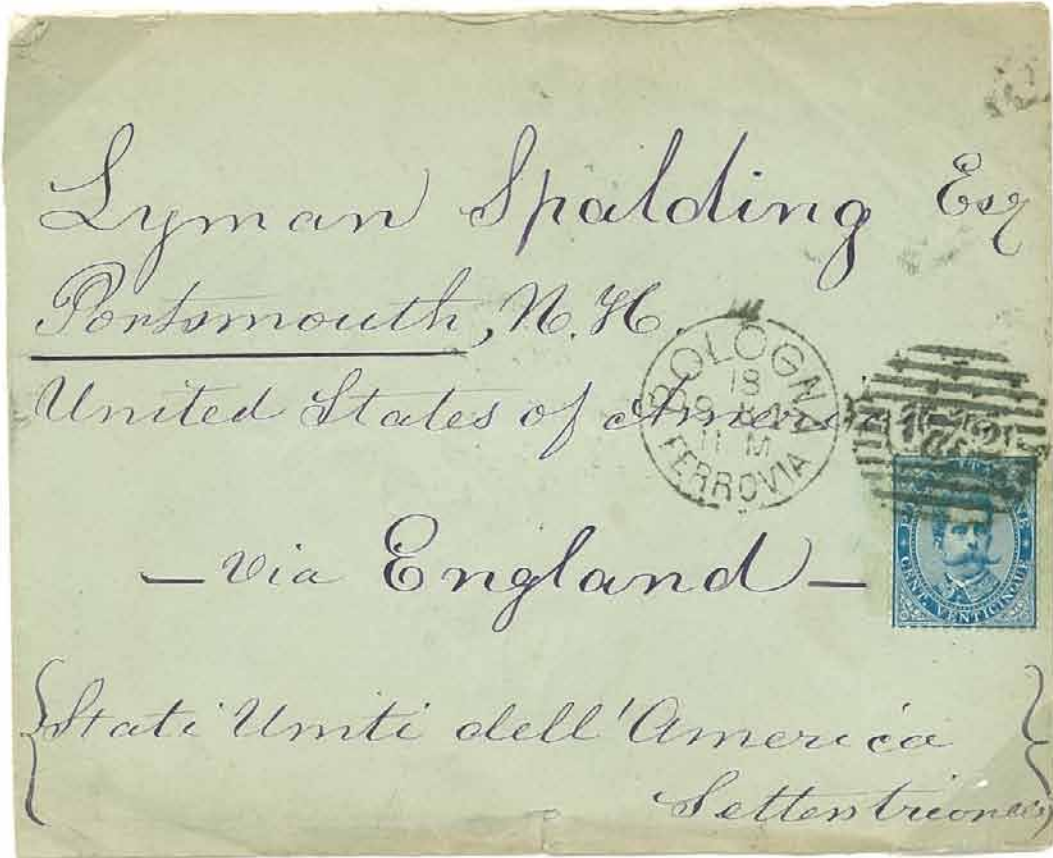 Lyman Spalding Esq
Portsmouth, N. H.
United States of America
BOLOGNA
18
11 M
FERROVIA
CENT. VENTICINQUE
— via England —
{Stati Uniti dell'America
Settentrionale}